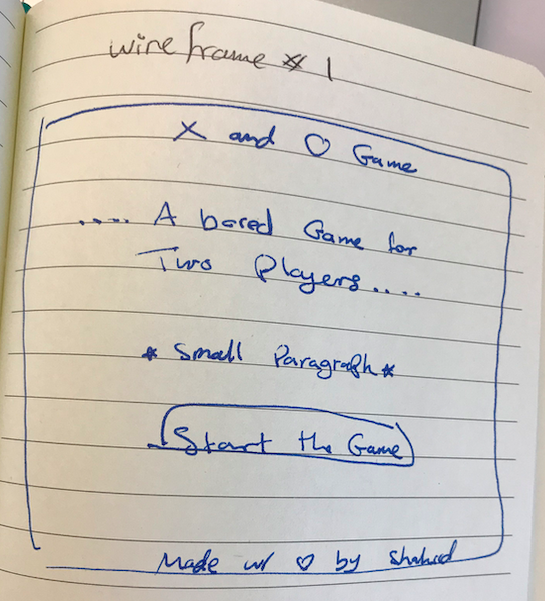 wireframe # 1
X and ♡ Game
..... A bored Game for
Two Players....
* Small Paragraph *
Start the Game
Made w/ ♡ by Shahad